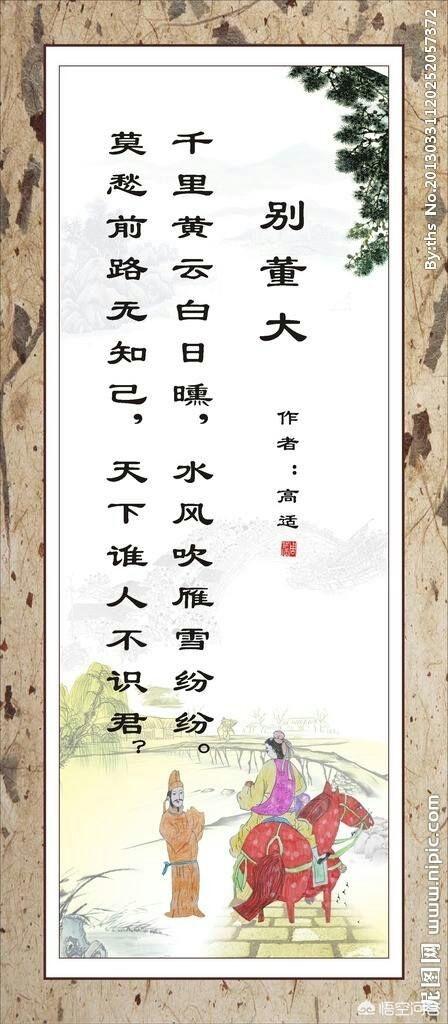 别董大
作者：高适
千里黄云白日曛，水风吹雁雪纷纷。
莫愁前路无知己，天下谁人不识君？
By:ths No.20130331120252057372
昵图网 www.nipic.com
悟空问答